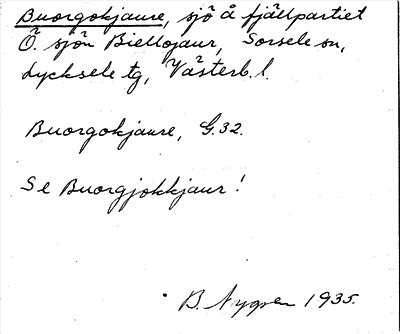 Buorgokjaure, sjö å fjällpartiet
Ö. sjön Biellojaur, Sorsele sn,
Lycksele tg, Västerb. l.
Buorgokjaure, G.32.
Se Buorgjokkjaur!
B. Nygren 1935.